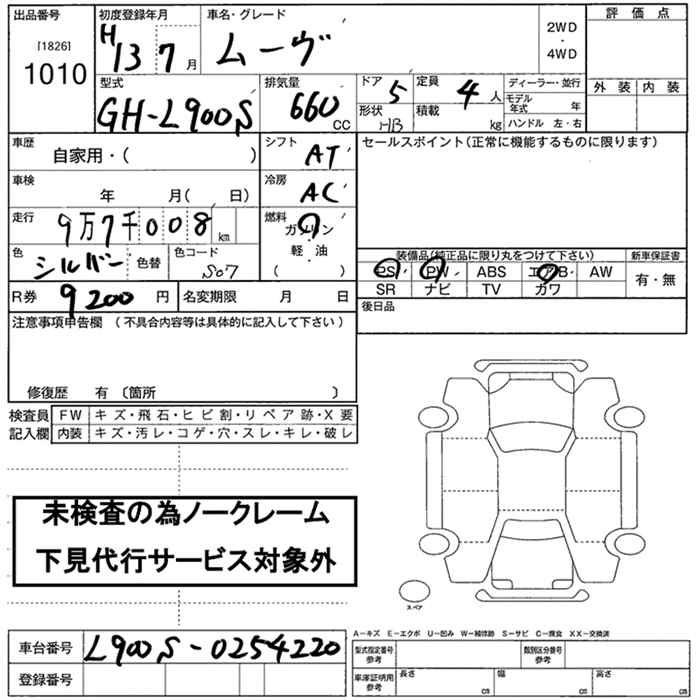 出品番号
[1826]
1010
初度登録年月
H 13 7 月
車名・グレード
ムーヴ
2WD
・
4WD
評価点
外装 内装
型式
GH-L900S
排気量
660 CC
ドア 5
形状 HB
定員 4 人
積載 kg
ディーラー・並行
モデル年式 年
ハンドル 左・右
車歴
自家用・( )
シフト
AT
セールスポイント(正常に機能するものに限ります)
車検
年 月( 日)
冷房
AC
走行
9万7千008 km
燃料
ガソリン
軽・油
( )
色
シルバー
色替
色コード
S07
装備品(純正品に限り丸をつけて下さい)
PS PW ABS エアB AW
SR ナビ TV カワ
新車保証書
有・無
R券 9200 円
名変期限 月 日
後日品
注意事項申告欄 (不具合内容等は具体的に記入して下さい)
修復歴 有 〔箇所 〕
検査員
記入欄
FW キズ・飛石・ヒビ割・リペア跡・X要
内装 キズ・汚レ・コゲ・穴・スレ・キレ・破レ
未検査の為ノークレーム
下見代行サービス対象外
スペア
A-キズ E-エクボ U-凹み W-補修跡 S-サビ C-腐食 XX-交換済
車台番号 L900S-0254220
登録番号
型式指定番号
参考
類別区分番号
参考
車庫証明用
参考
長さ cm
幅 cm
高さ cm